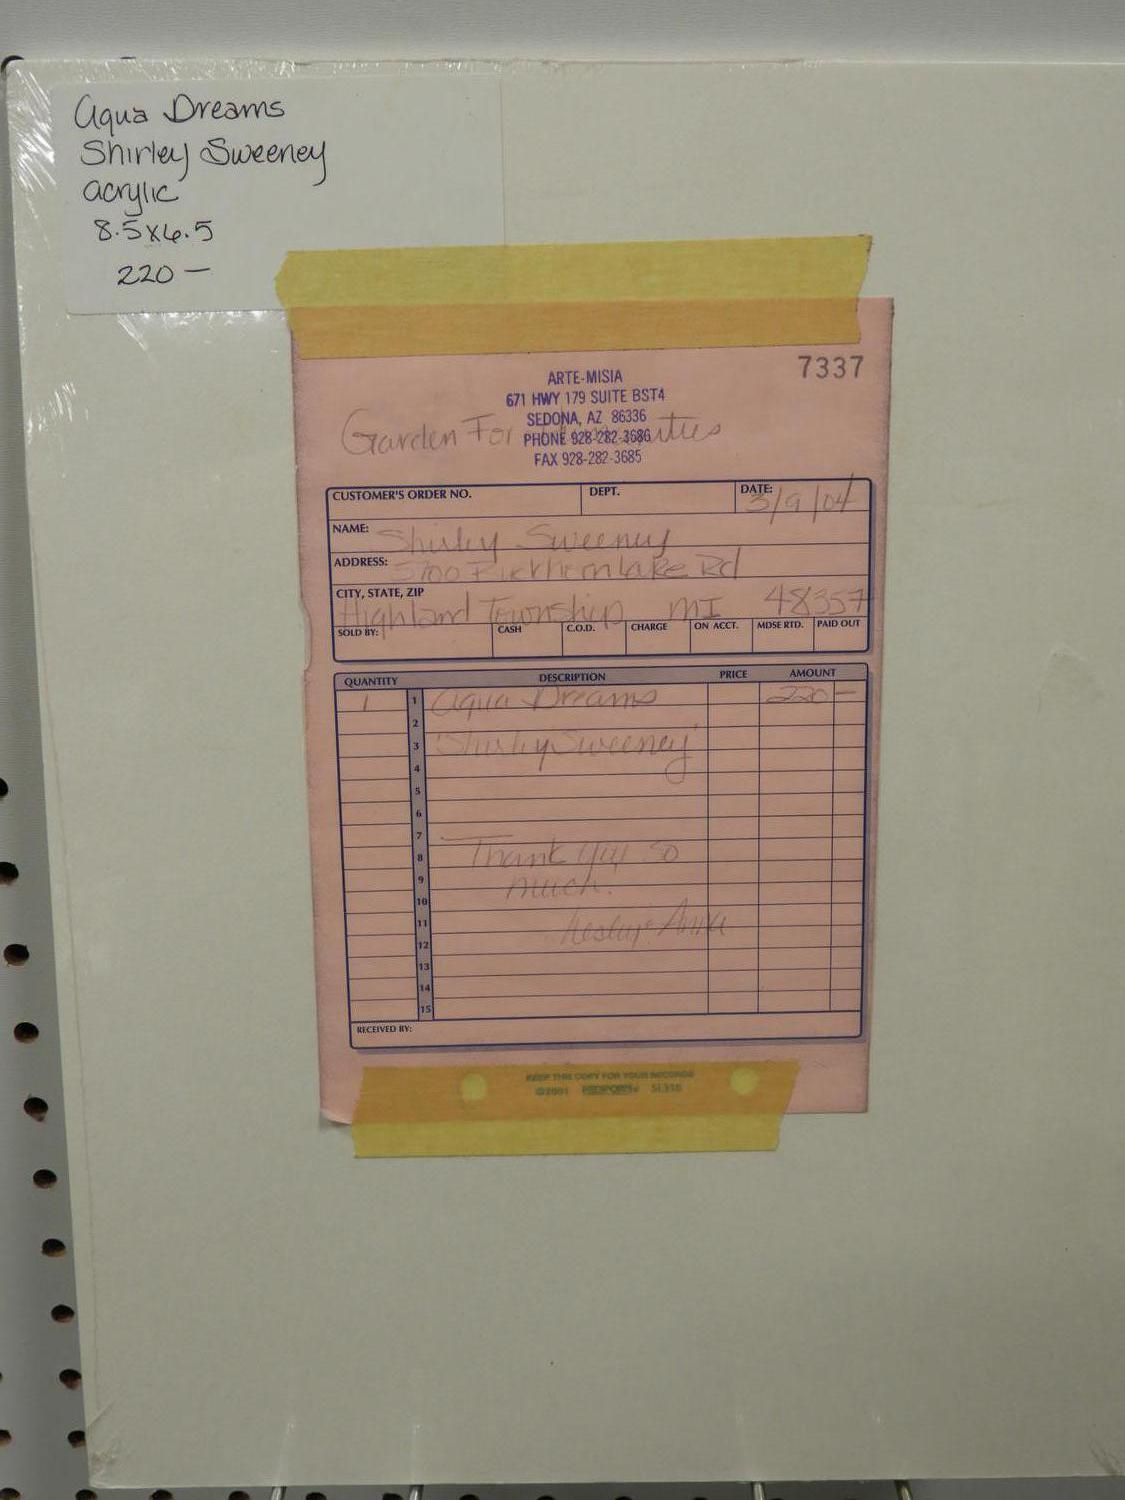 Aqua Dreams
Shirley Sweeney
acrylic
8.5x6.5
220 —
7337
ARTE-MISIA
671 HWY 179 SUITE BST4
SEDONA, AZ 86336
Garden For
PHONE 928-282-3686
FAX 928-282-3685
CUSTOMER'S ORDER NO. DEPT. DATE: 3/9/04
NAME: Shirley Sweeney
ADDRESS: 5700 Lake Rd
CITY, STATE, ZIP
Highland Township MI 48357
SOLD BY: CASH C.O.D. CHARGE ON ACCT. MDSE RTD. PAID OUT
QUANTITY DESCRIPTION PRICE AMOUNT
1 1 Aqua Dreams 220 —
2
3 'Shirley Sweeney'
4
5
6
7
8 Thank you so
9 much.
10
11
12
13
14
15
RECEIVED BY:
KEEP THIS COPY FOR YOUR RECORDS
©2001 REDIFORM® 5L350